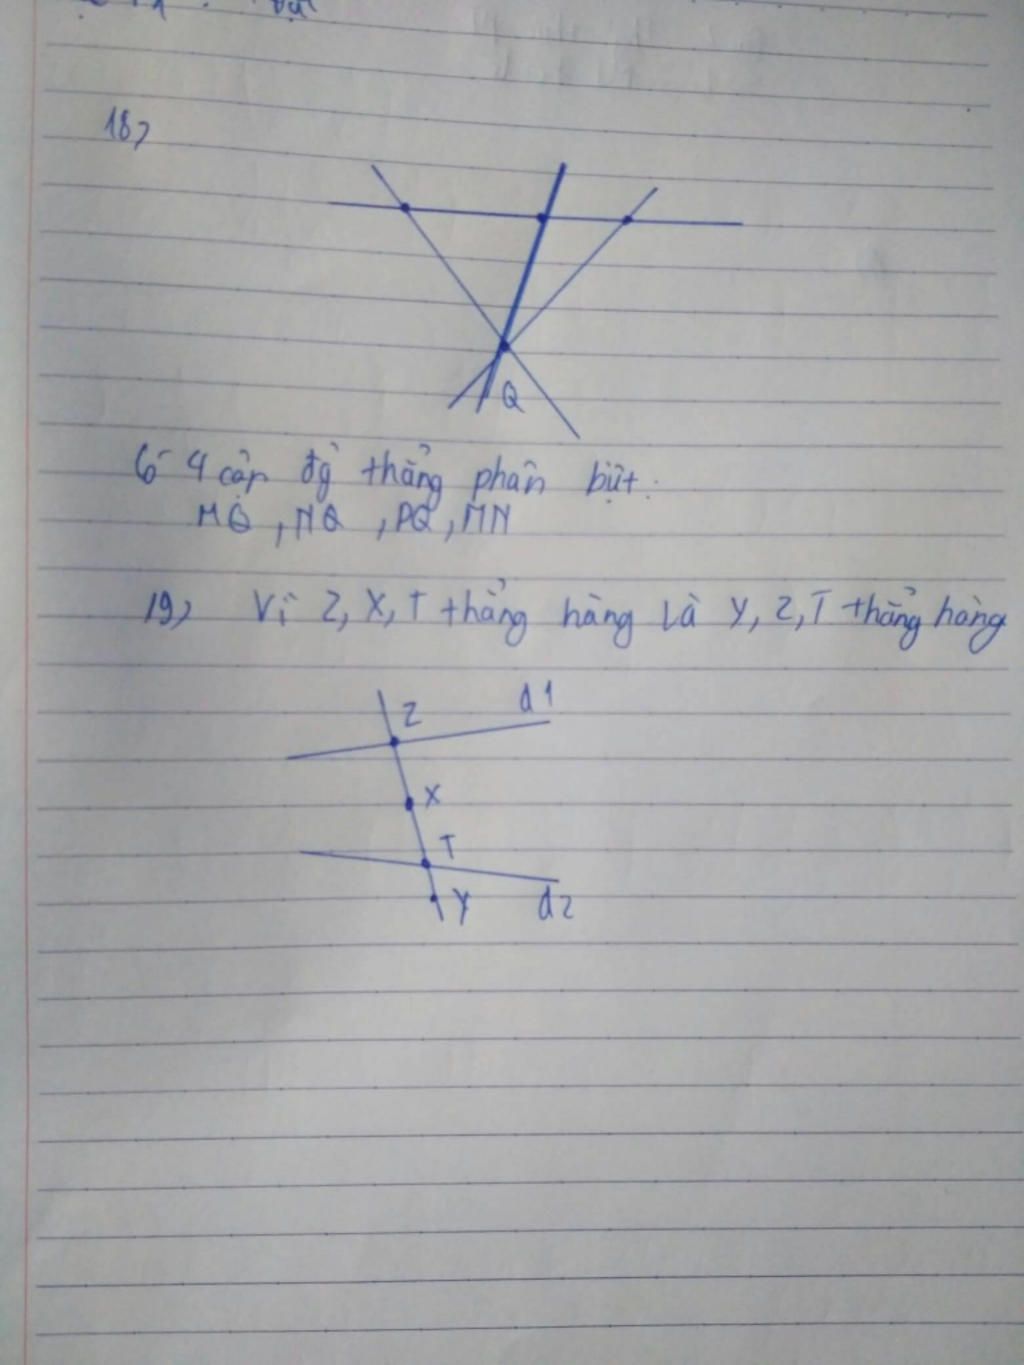 18,
Q
Có 4 cặp đg thẳng phân biệt:
MQ, NQ, PQ, MN
19, Vì Z, X, T thẳng hàng Là Y, Z, T thẳng hàng
Z d1
X
T
Y d2